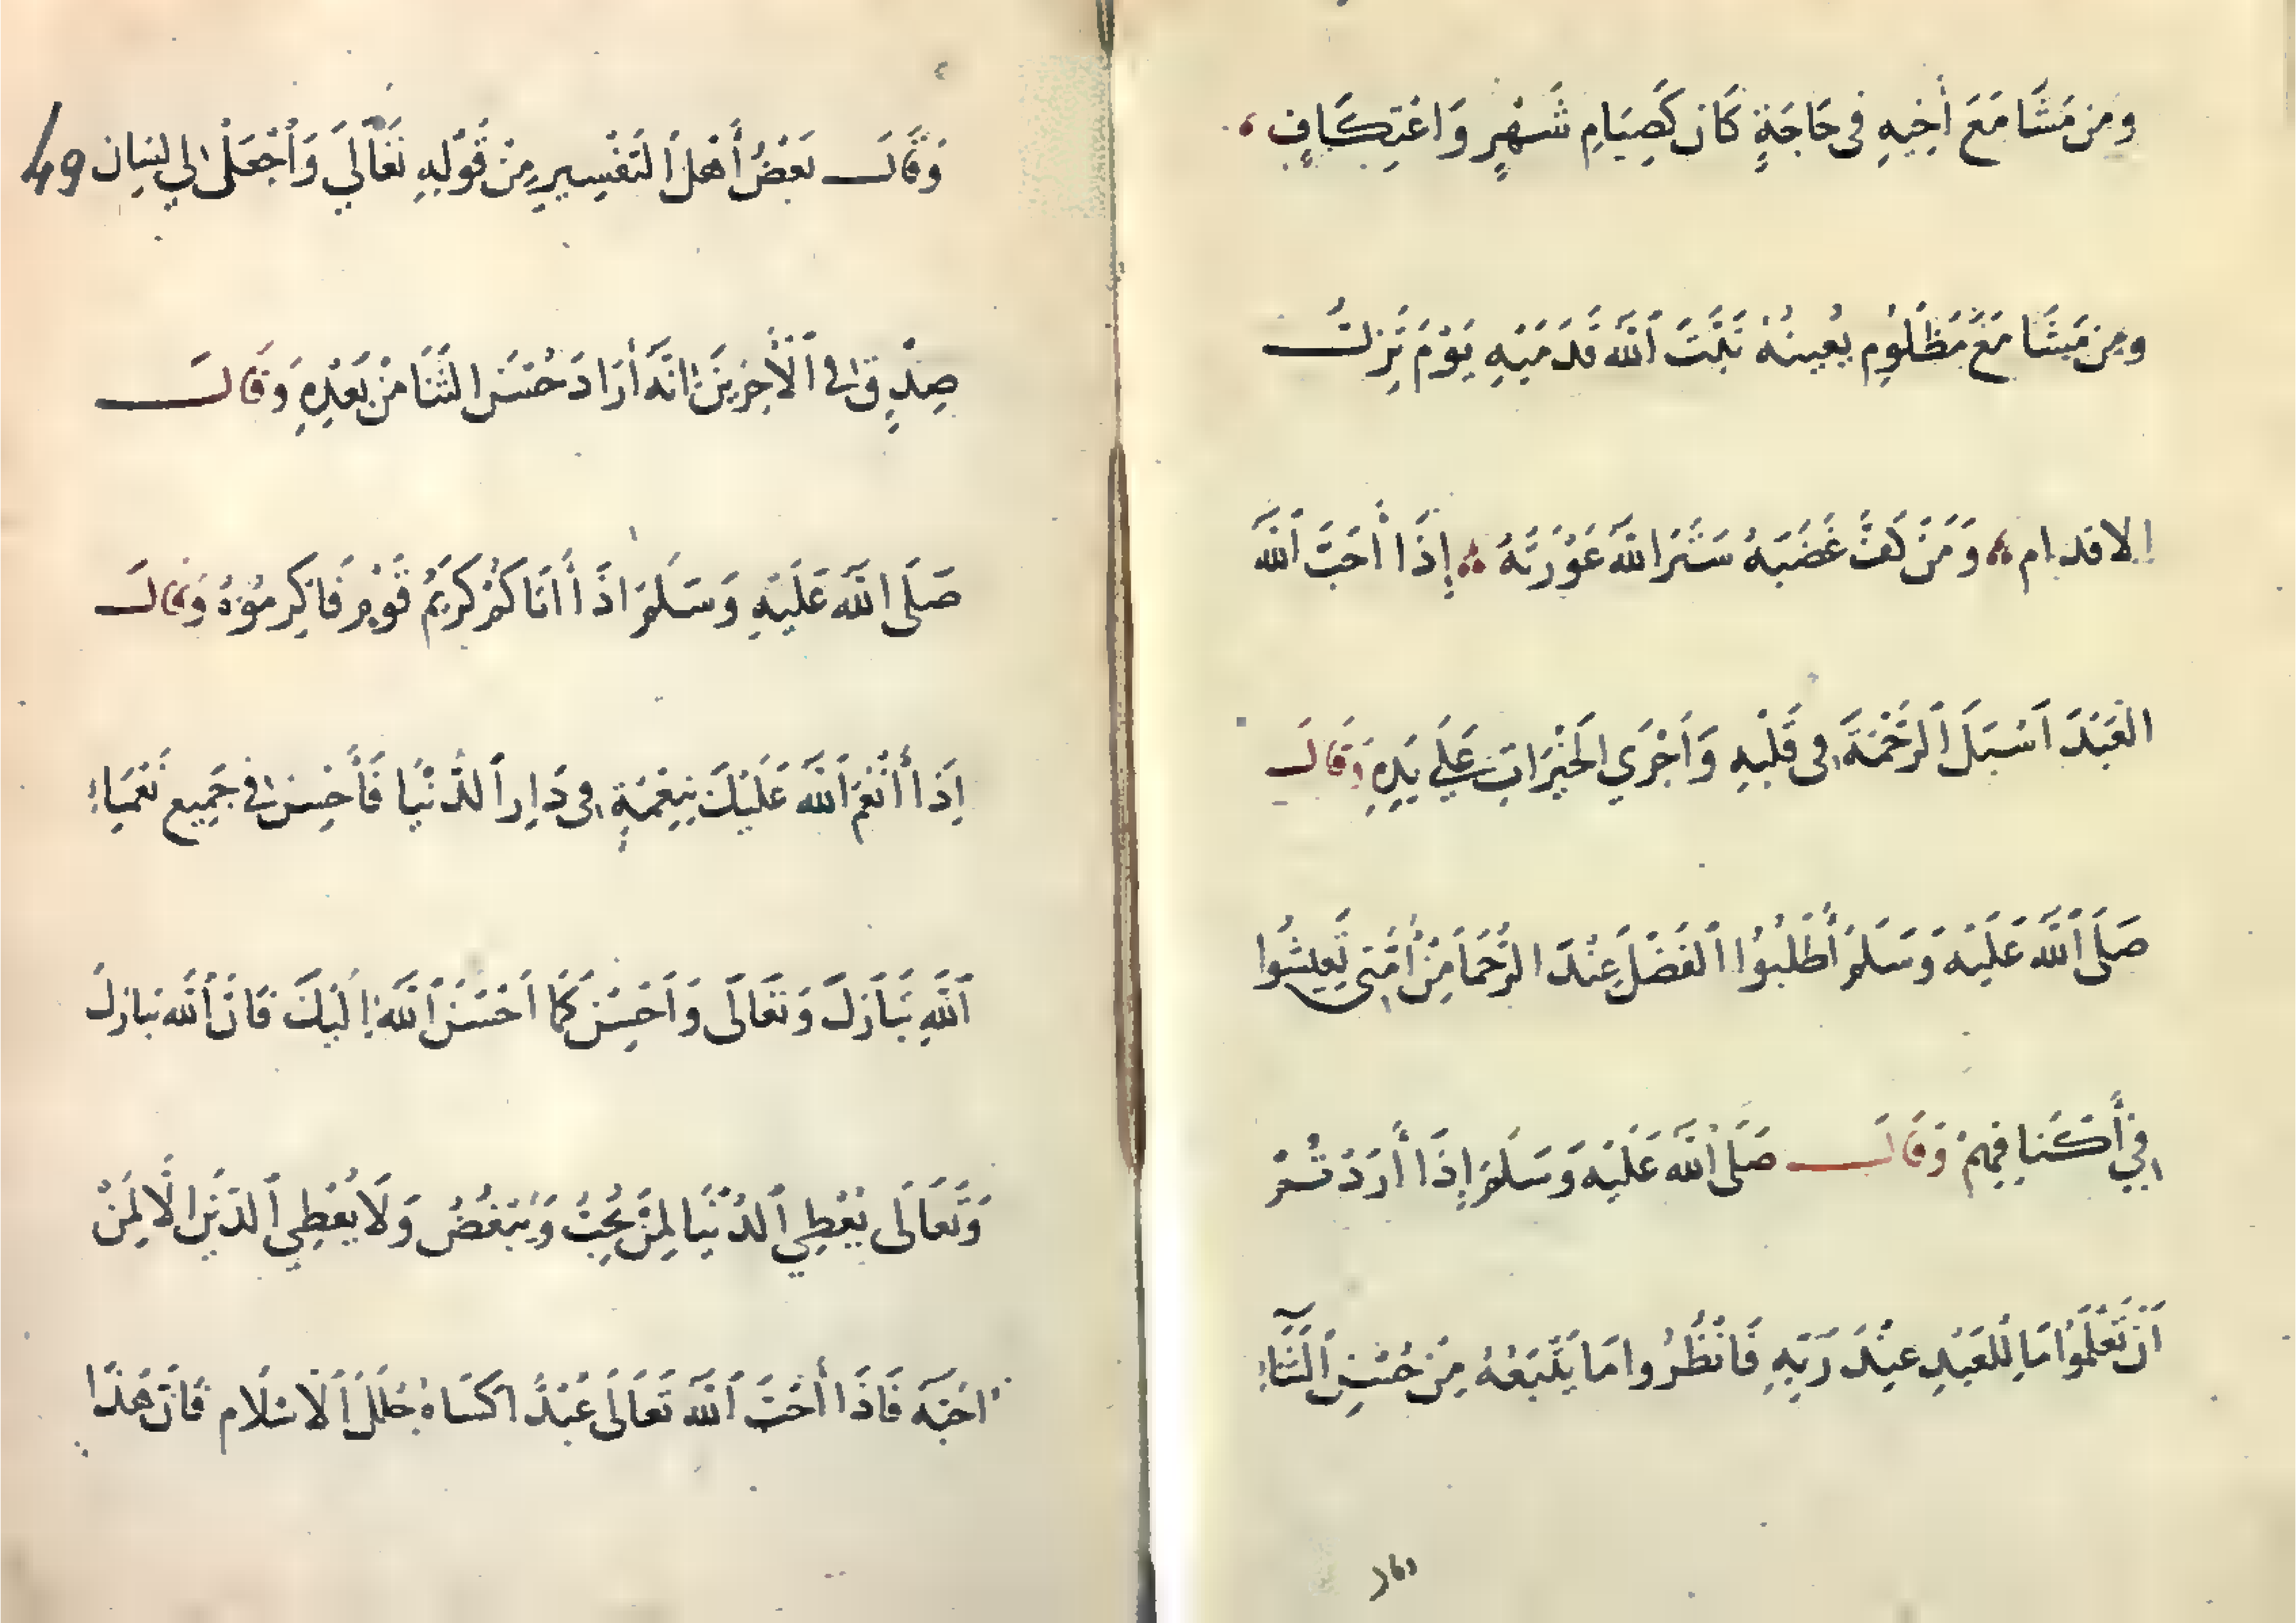 ومِن مَشَا مَعَ أَخِيهِ فِى حَاجَةٍ كَانَ كَصِيَامِ شَهْرٍ وَاعْتِكَافٍ
ومِن مَشَا مَعَ مَظْلُومٍ يُعِينُهُ ثَبَّتَ ٱللَّه قَدَمَيْهِ يَوْمَ تَزِلُّ
الاقدام وَمَنْ كَفَّ غَضَبَهُ سَتَرَ اللَّه عَوْرَتَهُ إِذَا أَحَبَّ ٱللَّه
العَبْدَ اَسْبَلَ ٱلرَّحْمَةَ فِى قَلْبِهِ وَاَجْرَي الخَيْرَاتِ عَلَي يَدِهِ وَقَالَ
صَلَى ٱللَّه عَلَيْهِ وَسَلَمَ أُطْلُبُوا ٱلفَضْلَ عِنْدَ الرُّحَمَا مِنْ أُمَّتِى تَعِيشُوا
فِي أَكْنَافِهِمْ وَقَالَ صَلَى ٱللَّه عَلَيْهِ وَسَلَمَ إِذَا أَرَدْتُمْ
اَنْ تَعْلَمُوا مَا لِلعَبْدِ عِنْدَ رَبِّهِ فَانْظُرُوا مَا يَتْبَعُهُ مِنْ حُسْنِ ٱلثَّنَآءِ
وقال
49
وَقَالَ بَعْضُ أَهْلِ ٱلتَفْسِيرِ مِنْ قَوْلِهِ تَعَالَي وَٱجْعَلْ لِي لِسَان
صِدْقٍ فِى ٱلْأَخِرِينَ اِنَّهُ أَرَادَ حُسْنَ الثَّنَا مِنْ بَعْدِهِ وَقَالَ
صَلَى اللَّه عَلَيْهِ وَسَلَمَ اذَا أَتَاكُمْ كَرِيمُ قَوْمٍ فَاكرِمُوهُ وَقَالَ
اِذَا أَنْعَمَ ٱللَّه عَلَيْكَ بِنِعْمَةٍ فِى دَارِ ٱلدُّنْيَا فَأَحْسِنْ فِى جَمِيعِ نَعْمَاءِ
ٱللَّهِ تَبَارَكَ وَتَعَالَى وَاَحْسِنْ كَمَا اَحْسَنَ ٱللَّه اِلَيْكَ فَانَّ ٱللَّه تبَارَكَ
وَتَعَالَى يُعْطِي ٱلدُّنْيَا لِمَنْ يُحِبُّ وَيُبْغُضُ وَلَا يُعْطِي ٱلدِّيْنَ اِلَّا لِمَنْ
احَبَّهُ فَاذَا أَحَبَّ ٱللَّه تَعَالَى عَبْدًا كَسَاهُ حُلَلَ ٱلْاسْلَام فَانَّ هَذَا